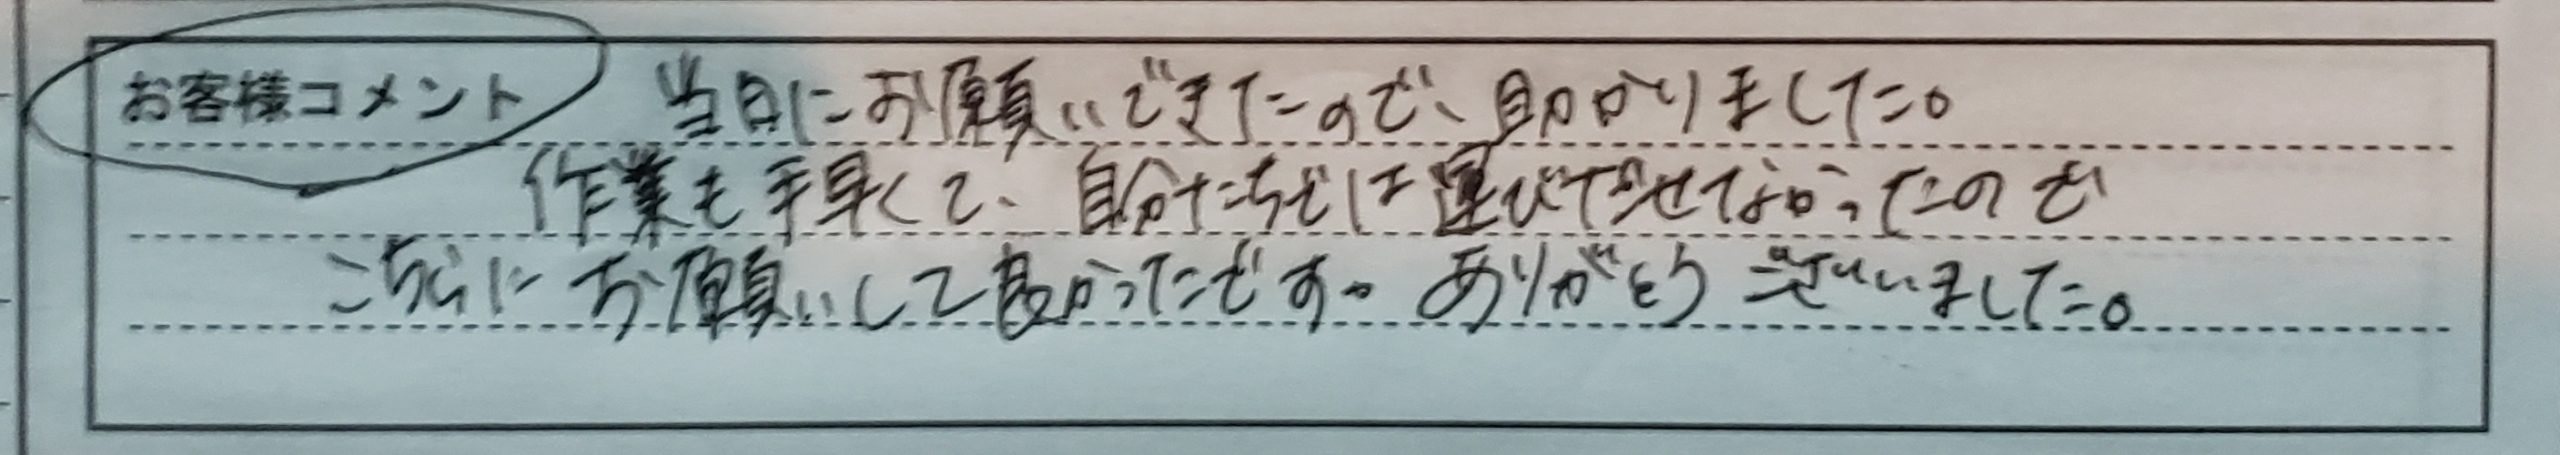 お客様コメント 当日にお願いできたので、助かりました。
作業も手早くて、自分たちでは運びだせなかったので
こちらにお願いして良かったです。ありがとうございました。